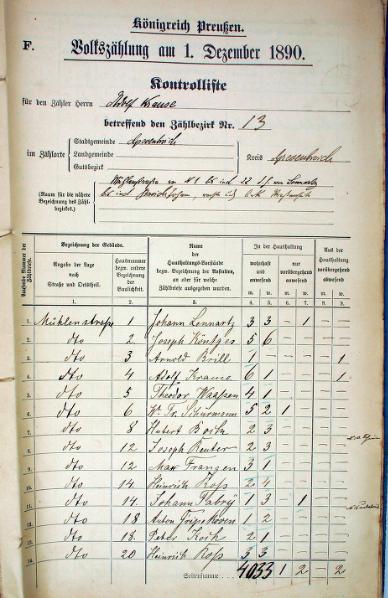 Königreich Preußen.
F. Volkszählung am 1. Dezember 1890.
Kontrolliste
für den Zähler Herrn Adolf Krause
betreffend den Zählbezirk Nr. 13
im Zählorte
Stadtgemeinde
Landgemeinde
Gutsbezirk
Kreis
(Raum für die nähere Bezeichnung des Zählbezirkes.)
Laufende Nummer der Zählbriefe.
Bezeichnung der Gebäude.
Angabe der Lage nach Straße und Ortstheil.
Hausnummer bezw. andere Bezeichnung der Baulichkeit.
Name der Haushaltungs-Vorstände bezw. Bezeichnung der Anstalten, an oder für welche Zählbriefe ausgegeben wurden.
In der Haushaltung
wohnhaft und anwesend
nur vorübergehend anwesend
Aus der Haushaltung
vorübergehend abwesend
m. w. m. w. m. w.
1. 2. 3. 4. 5. 6. 7. 8. 9.
1. Mühlenstraße 1 Johann Lennartz 3 3 – 1
2. dto 2 Joseph Köntges 5 6
3. dto 3 Arnold Brill 1 1
4. dto 4 Adolf Krause 6 1 1
5. dto 5 Theodor Waassen 4 1
6. dto 6 W. Th. Schürmann 5 2 1
7. dto 8 Hubert 2 3
8. dto 12 Joseph Reuter 2 3
9. dto 12 Max Frangen 3 1
10. dto 14 Heinrich Koss 2 4
11. dto 14. Johann Fabry 1 3 1
12. dto 18 Anton 1 2
13. dto 18. Peter Koch 2 1
14. dto 20 Heinrich Koss 3 3
Seitensumme 40 33 1 2 – 2